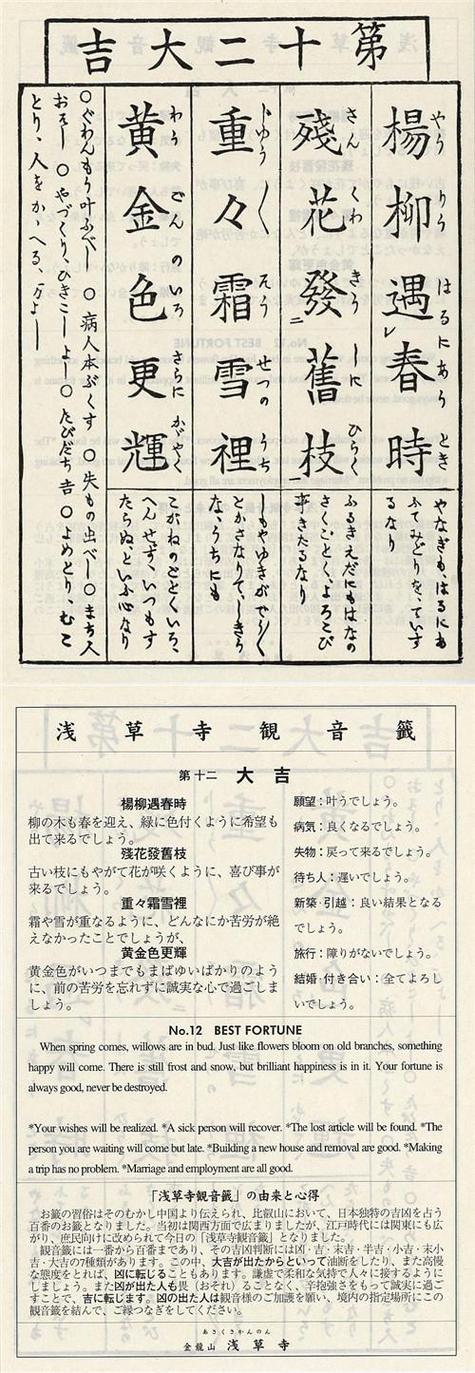 第十二大吉
楊柳遇春時
やう りう はるにあう とき
残花發舊枝
さん くわ きう しに ひらく
重々霜雪裡
じゆう 〱 そう せつの うち
黄金色更輝
わう ごんのいろ さらに かゞやく
やなぎも、はるにあ
ふてみどりを、ていす
るなり
ふるきえだにもはなの
さくごとく、よろこび
事きたるなり
しもやゆきが
とかさなりて、
うちにも
こがねのごとくいろ、
へんせず、いつもす
たらぬ、といふ心なり
〇ぐわんもう叶ふべし 〇病人本ぶくす 〇失もの出べし〇まち人
おそし 〇やづくり、ひきこしよし〇たびだち吉〇よめとり、むこ
とり、人をかゝへる、万よし
浅草寺観音籤
第十二 大吉
楊柳遇春時
柳の木も春を迎え、緑に色付くように希望も
出て来るでしょう。
殘花發舊枝
古い枝にもやがて花が咲くように、喜び事が
来るでしょう。
重々霜雪裡
霜や雪が重なるように、どんなにか苦労が絶
えなかったことでしょうが、
黄金色更輝
黄金色がいつまでもまばゆいばかりのよう
に、前の苦労を忘れずに誠実な心で過ごしま
しょう。
願望：叶うでしょう。
病気：良くなるでしょう。
失物：戻って来るでしょう。
待ち人：遅いでしょう。
新築・引越：良い結果となる
でしょう。
旅行：障りがないでしょう。
結婚・付き合い：全てよろし
いでしょう。
No.12 BEST FORTUNE
When spring comes, willows are in bud. Just like flowers bloom on old branches, something
happy will come. There is still frost and snow, but brilliant happiness is in it. Your fortune is
always good, never be destroyed.
*Your wishes will be realized. *A sick person will recover. *The lost article will be found. *The
person you are waiting will come but late. *Building a new house and removal are good. *Making
a trip has no problem. *Marriage and employment are all good.
「浅草寺観音籤」の由来と心得
お籤の習俗はそのむかし中国より伝えられ、比叡山において、日本独特の吉凶を占う
百番のお籤となりました。当初は関西方面で広まりましたが、江戸時代には関東にも広
がり、庶民向けに改められて今日の「浅草寺観音籤」となりました。
観音籤には一番から百番まであり、その吉凶判断には凶・吉・末吉・半吉・小吉・末小
吉・大吉の7種類があります。この中、大吉が出たからといって油断をしたり、また高慢
な態度をとれば、凶に転じることもあります。謙虚で柔和な気持で人々に接するように
しましょう。また凶が出た人も畏（おそ）れることなく、辛抱強さをもって誠実に過ご
すことで、吉に転じます。凶の出た人は観音様のご加護を願い、境内の指定場所にこの
観音籤を結んで、ご縁つなぎをしてください。
あさくさかんのん
金龍山 浅草寺